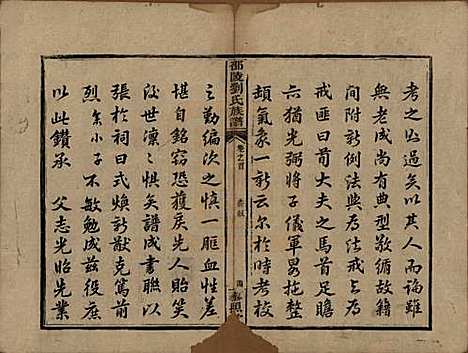 考之必過矣以其人而論雖
無老成尚有典型敬循故籍
間附新例法與為法戒與為
戒匪曰荀大夫之馬首而瞻
亦猶光弼將子儀軍畧扽整
頓氣象一新云尔於時考校
邵陵劉氏族譜
卷之首
之勤編次之慎一腔血性差
堪自銘窃恐獲戾先人貽笑
後世凛凛惧矣譜成書聯以
張於祠曰式煥新猷克篤前
烈矣小子不敏勉成茲庶幾
以此鑽承父志光貽先業